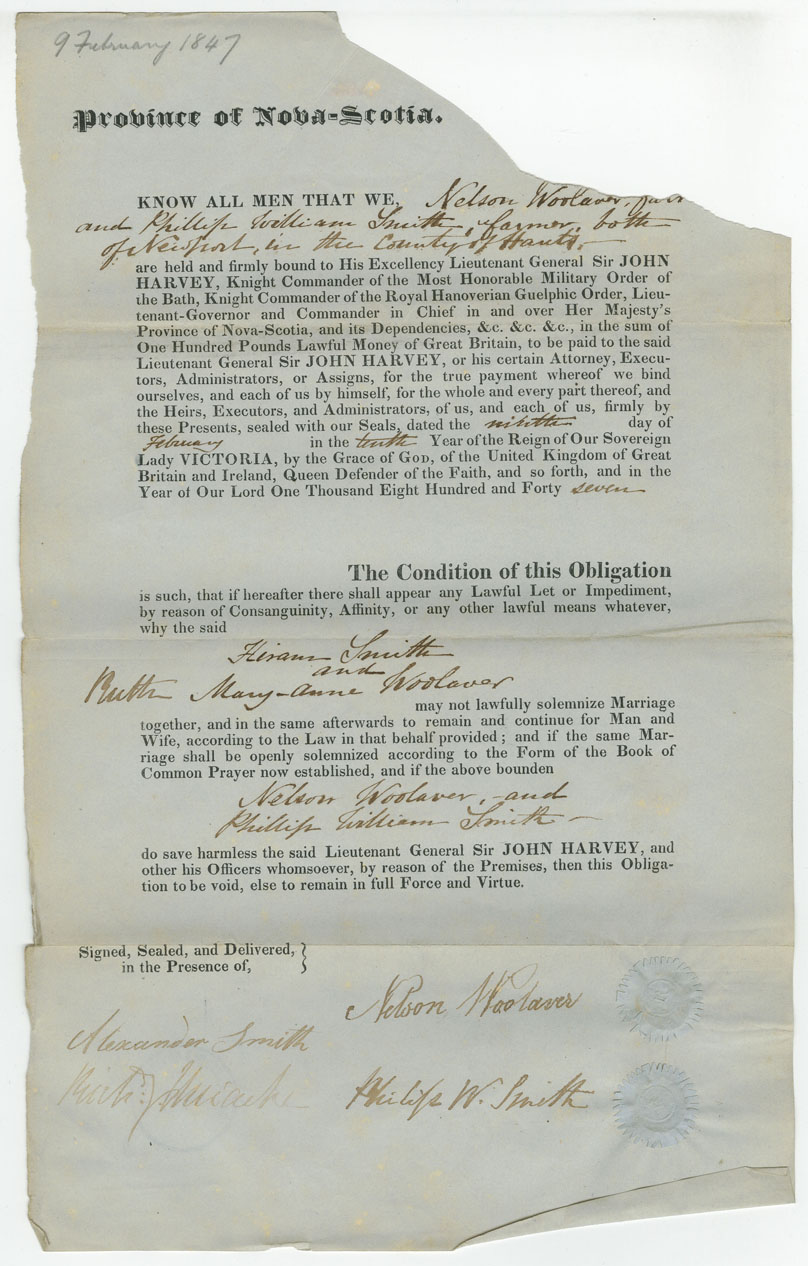 9 February 1847
Province of Nova-Scotia.
KNOW ALL MEN THAT WE, Nelson Woolaver, farm
and Phillip William Smith, farmer, both
of Newport, in the County of Hants,
are held and firmly bound to His Excellency Lieutenant General Sir JOHN
HARVEY, Knight Commander of the Most Honorable Military Order of
the Bath, Knight Commander of the Royal Hanoverian Guelphic Order, Lieu-
tenant-Governor and Commander in Chief in and over Her Majesty's
Province of Nova-Scotia, and its Dependencies, &c. &c. &c., in the sum of
One Hundred Pounds Lawful Money of Great Britain, to be paid to the said
Lieutenant General Sir JOHN HARVEY, or his certain Attorney, Execu-
tors, Administrators, or Assigns, for the true payment whereof we bind
ourselves, and each of us by himself, for the whole and every part thereof, and
the Heirs, Executors, and Administrators, of us, and each of us, firmly by
these Presents, sealed with our Seals, dated the day of
February in the tenth Year of the Reign of Our Sovereign
Lady VICTORIA, by the Grace of GOD, of the United Kingdom of Great
Britain and Ireland, Queen Defender of the Faith, and so forth, and in the
Year of Our Lord One Thousand Eight Hundred and Forty seven
The Condition of this Obligation
is such, that if hereafter there shall appear any Lawful Let or Impediment,
by reason of Consanguinity, Affinity, or any other lawful means whatever,
why the said
Hiram Smith
and
Ruth Mary-Anne Woolaver
may not lawfully solemnize Marriage
together, and in the same afterwards to remain and continue for Man and
Wife, according to the Law in that behalf provided; and if the same Mar-
riage shall be openly solemnized according to the Form of the Book of
Common Prayer now established, and if the above bounden
Nelson Woolaver, and
Phillip William Smith
do save harmless the said Lieutenant General Sir JOHN HARVEY, and
other his Officers whomsoever, by reason of the Premises, then this Obliga-
tion to be void, else to remain in full Force and Virtue.
Signed, Sealed, and Delivered, }
in the Presence of,
Nelson Woolaver
Alexander Smith
Philip W. Smith